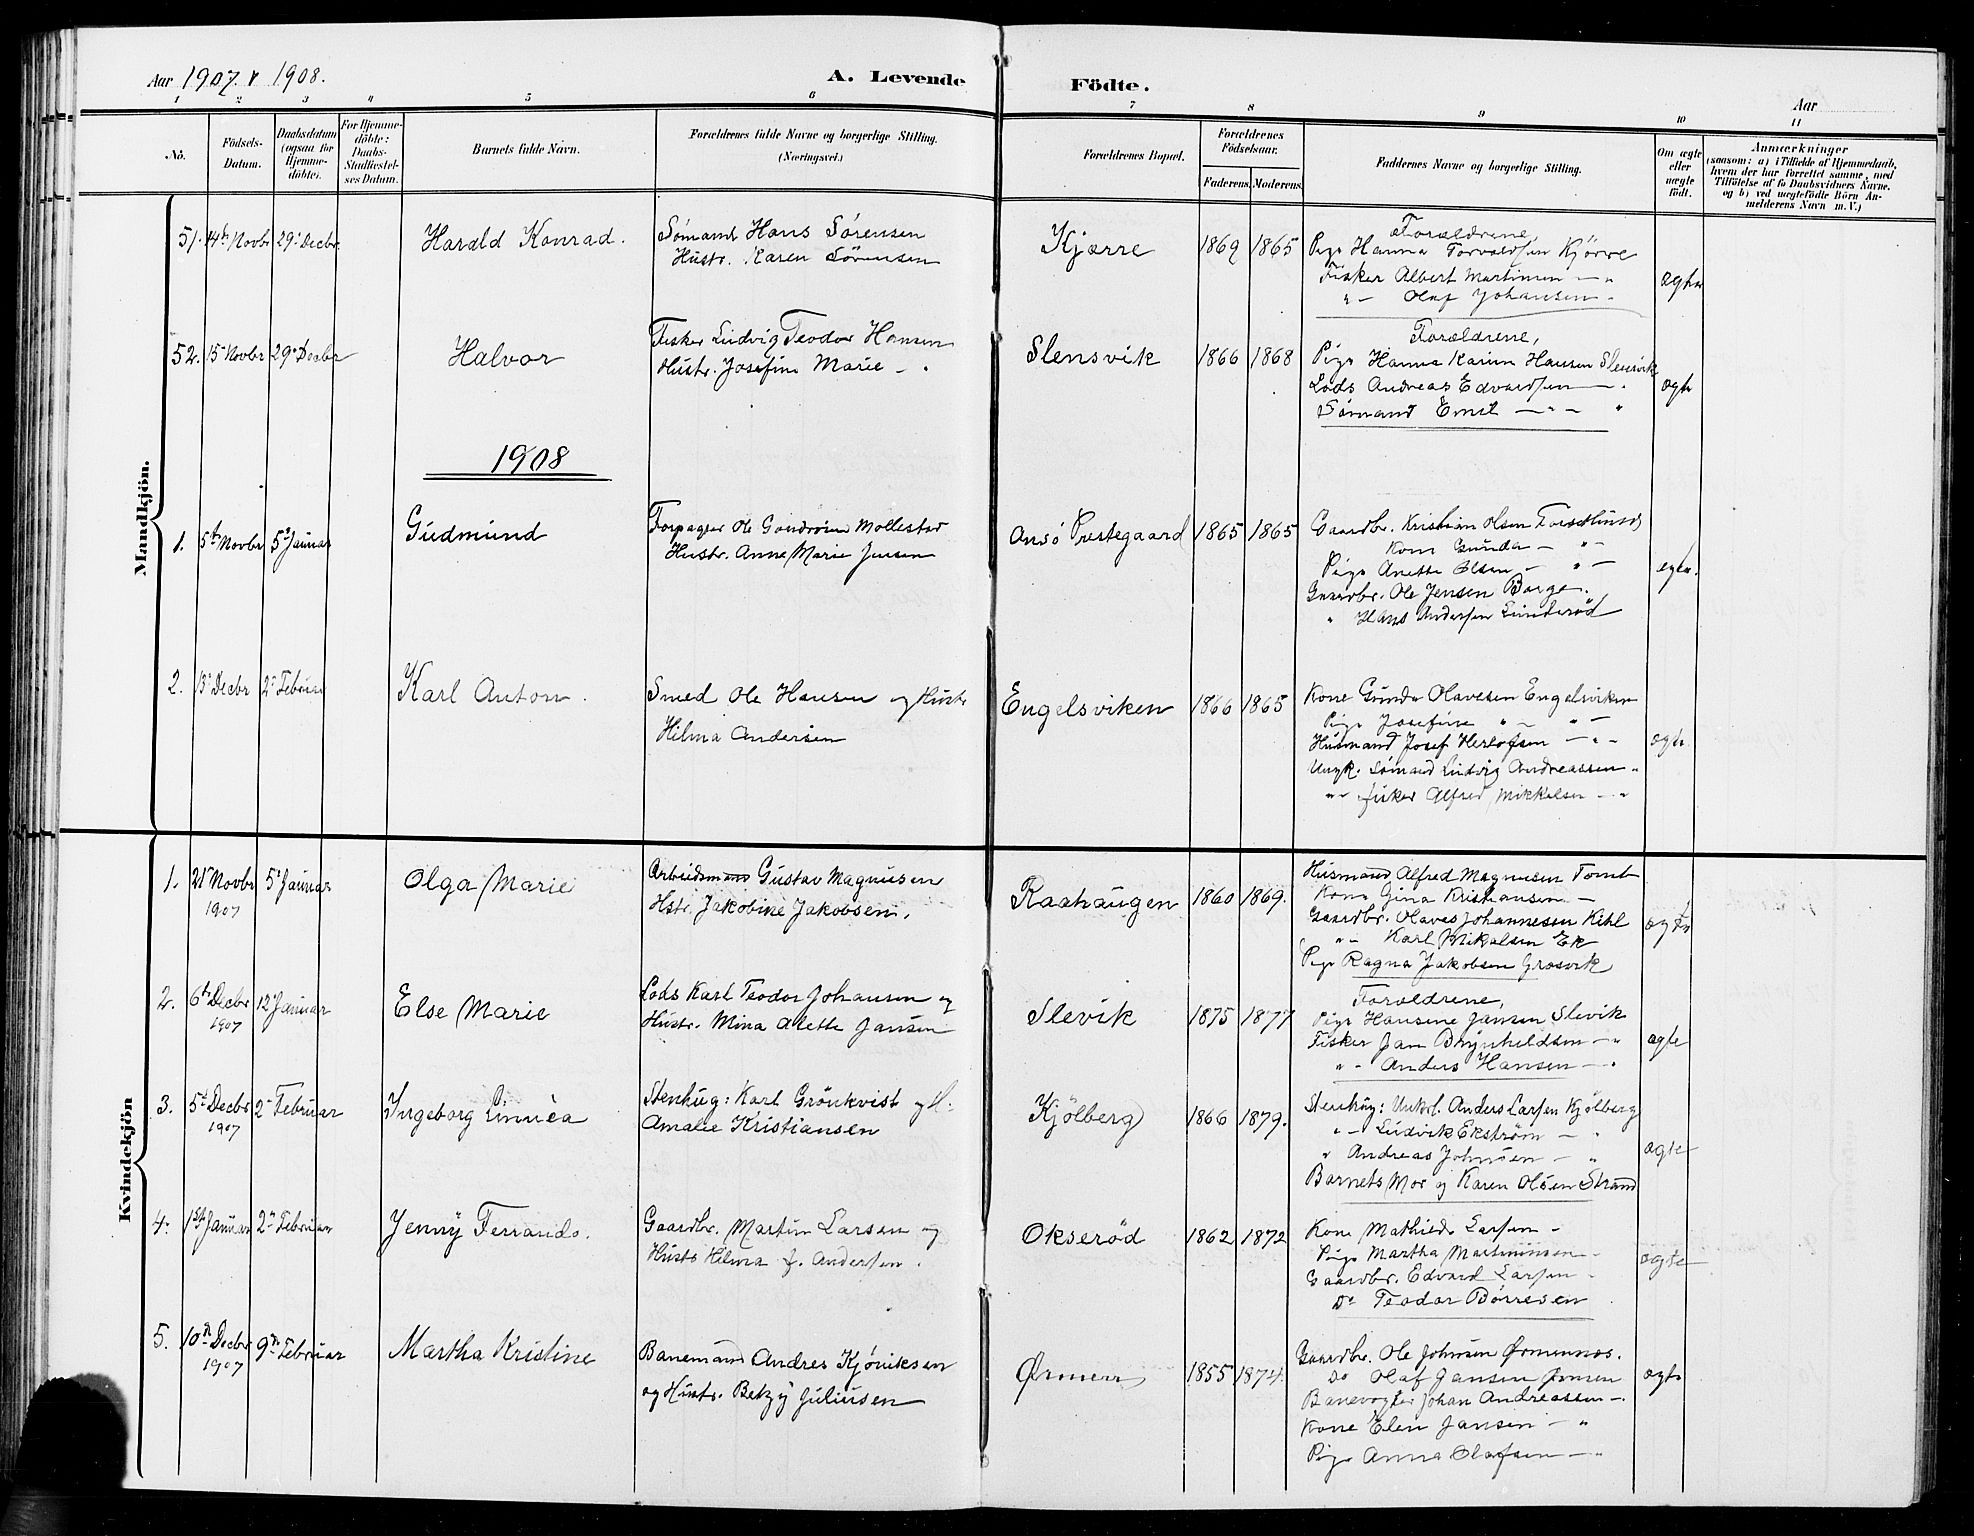 Aar 1907 & 1908.
A. Levende Födte.
Aar
1 2 3 4 5 6 7 8 9 10 11
No.
Födsels-Datum.
Daabsdatum (ogsaa for Hjemme-döbte).
For Hjemme-döbte: Daabs-Stadfæstel-ses Datum.
Barnets fulde Navn.
Forældrenes fulde Navne og borgerlige Stilling.
(Næringsvei.)
Forældrenes Bopæl.
Forældrenes Födselsaar.
Faderens. Moderens.
Faddernes Navne og borgerlige Stilling.
Om ægte eller uægte födt.
Anmærkninger
(saasom: a) i Tilfælde af Hjemmedaab,
hvem der har forrettet samme, med
Tilföielse af to Daabsvidners Navne.
og b) ved uægtefödte Börn An-
melderens Navn m. V.)
Mandkjön.
51. 14de Novbr 29. Decbr. Harald Konrad. Sømand Hans Sørensen
Hustr. Karen Sörensen
Kjærre 1869 1865 Forældrene,
Pige Hanna Torvaldsen Kjörre
Fisker Albert Martinsen — "
" — Olaf Johansen "
ægte
52. 15. Novbr 29. Decbr Halvor Fisker Ludvig Teodor Hansen
Hustr. Josefine Marie — "
Slensvik 1866 1868 Forældrene,
Pige Hanna Karin Hansen Slensvik
Lods Andreas Edvardsen — "
Sömand Emil — " — "
ægte
1908
1. 5te Novbr 5. Januar Gudmund Forpagter Ole Mollestad
Hustr. Anne Marie Jensen
Onsö Prestegaard 1865 1865 Gaardbr. Kristian Olsen
Kone Gunda — " —
Pige Anette Olsen — " —
Gaardbr. Ole Jensen Borge.
" Hans Andersen Lunderöd
egte.
2. 13. Decbr 2. Februar Karl Anton. Smed Ole Hansen og Hustr
Hilma Andersen
Engelsviken 1866 1865 Kone Gunda Olavesen Engelsviken
Pige Josefine " — " —
Husmand Josef Herlofsen — " —
Ungk. Sömand Ludvig Andreassen "
" — fisker Alfred Mikkelsen — "
ægte
Kvindekjön
1. 21. Novbr 1907 5. Januar Olga Marie Arbeidsmand Gustav Magnusen
Hstr. Jakobine Jakobsen.
Raahaugen 1860 1869. Husmand Alfred Magnusen Tomb
Kone Gina Kristiansen —
Gaardbr. Olaves Johannesen Kihl
" — Karl Mikalsen Ek
Pige Ragna Jakobsen Grosvik
ægte
2. 6te Decbr 1907 12. Januar Else Marie Lods Karl Teodor Johansen og
Hustr. Mina Alette Jansen
Slevik 1875 1877 Forældrene,
Pige Hansine Jansen Slevik
Fisker Jan Brynhildsen — "
" — Anders Hansen — "
ægte
3. 5te Decbr 1907 2. Februar Ingeborg Linnéa Stenhug: Karl Grönkvist og H:
Amalie Kristiansen
Kjölberg 1866 1879. Stenhug: Unkrl. Anders Larsen Kjölberg
" — Ludvik Ekström — "
" Andreas Johnsen — "
Barnets Mor og Karen Olsen Strand
ægte
4. 1ste Januar 2n Februar Jenny Fernanda. Gaardbr. Martin Larsen og
Hustr Hilma J. Andersen.
Okseröd 1862 1872 Kone Mathilde Larsen —
Pige Martha Martininsen —
Gaardbr. Edvard Larsen —
Do Teodor Börresen
ægte
5. 10n Decbr 1907 9n Februar Martha Kristine Banemand Andres Kjöniksen
og Hustr. Betzy Juliusen
Ørmen 1855 1874. Gaardbr. Ole Johnsen Ørmennæs.
Do Olaf Jansen Ørmen
Banevogter Johan Andreassen — "
Kone Elen Jansen — "
Pige Anna Olafsen — "
ægte